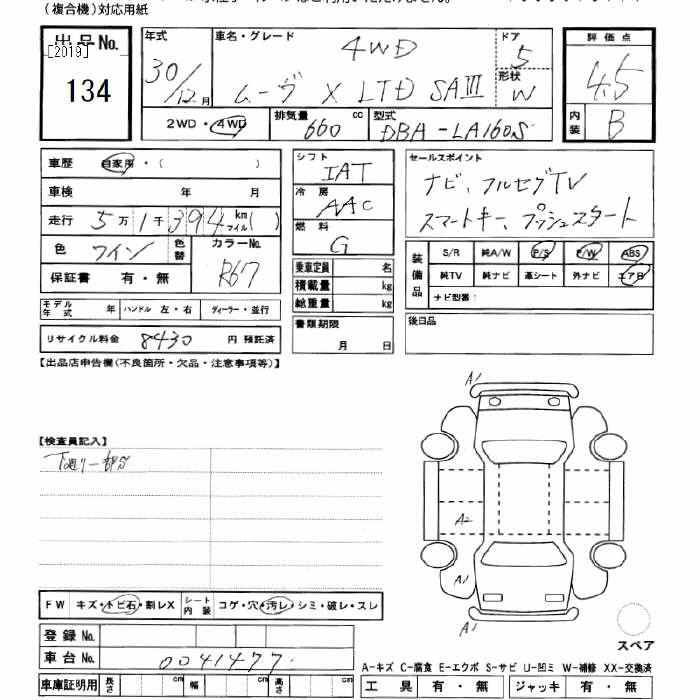 (複合機)対応用紙
出品No.
[2019]
134
年式
30/12月
車名・グレード
4WD
ムーヴ X LTD SAⅢ
ドア
5
形状
W
2WD・4WD
排気量 660 cc
型式 DBA-LA160S
評価点
4.5
内装 B
車歴 自家用・( )
車検 年 月
走行 5万1千394km マイル( )
色 ワイン 色替
カラーNo. R67
保証書 有・無
モデル年式 年 ハンドル 左・右 ディーラー・並行
リサイクル料金 8430 円 預託済
シフト IAT
冷房 AAC
燃料 G
乗車定員 名
積載量 kg
総重量 kg
書類期限
月 日
セールスポイント
ナビ、フルセグTV
スマートキー、プッシュスタート
装備品
S/R 純A/W P/S P/W ABS
純TV 純ナビ 革シート 外ナビ エアB
ナビ型番:
後日品
【出品店申告欄(不良箇所・欠品・注意事項等)】
【検査員記入】
下廻り一部S
A1
A2
A1
A1
スペア
FW キズ・トビ石・割レX シート内装 コゲ・穴・汚レ・シミ・破レ・スレ
登録No.
車台No. 0041477
車庫証明用 長さ cm 幅 cm 高さ cm
A-キズ C-腐食 E-エクボ S-サビ U-凹ミ W-補修 XX-交換済
工具 有・無 ジャッキ 有・無